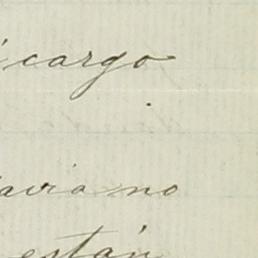 cargo
avia no
están